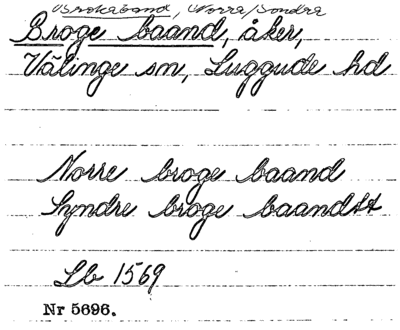 Brokaband, Norra/Södra
Broge baand, åker,
Välinge sn, Luggude hd
Norre broge baand
Syndre broge baandtt
Lb 1569
Nr 5696.